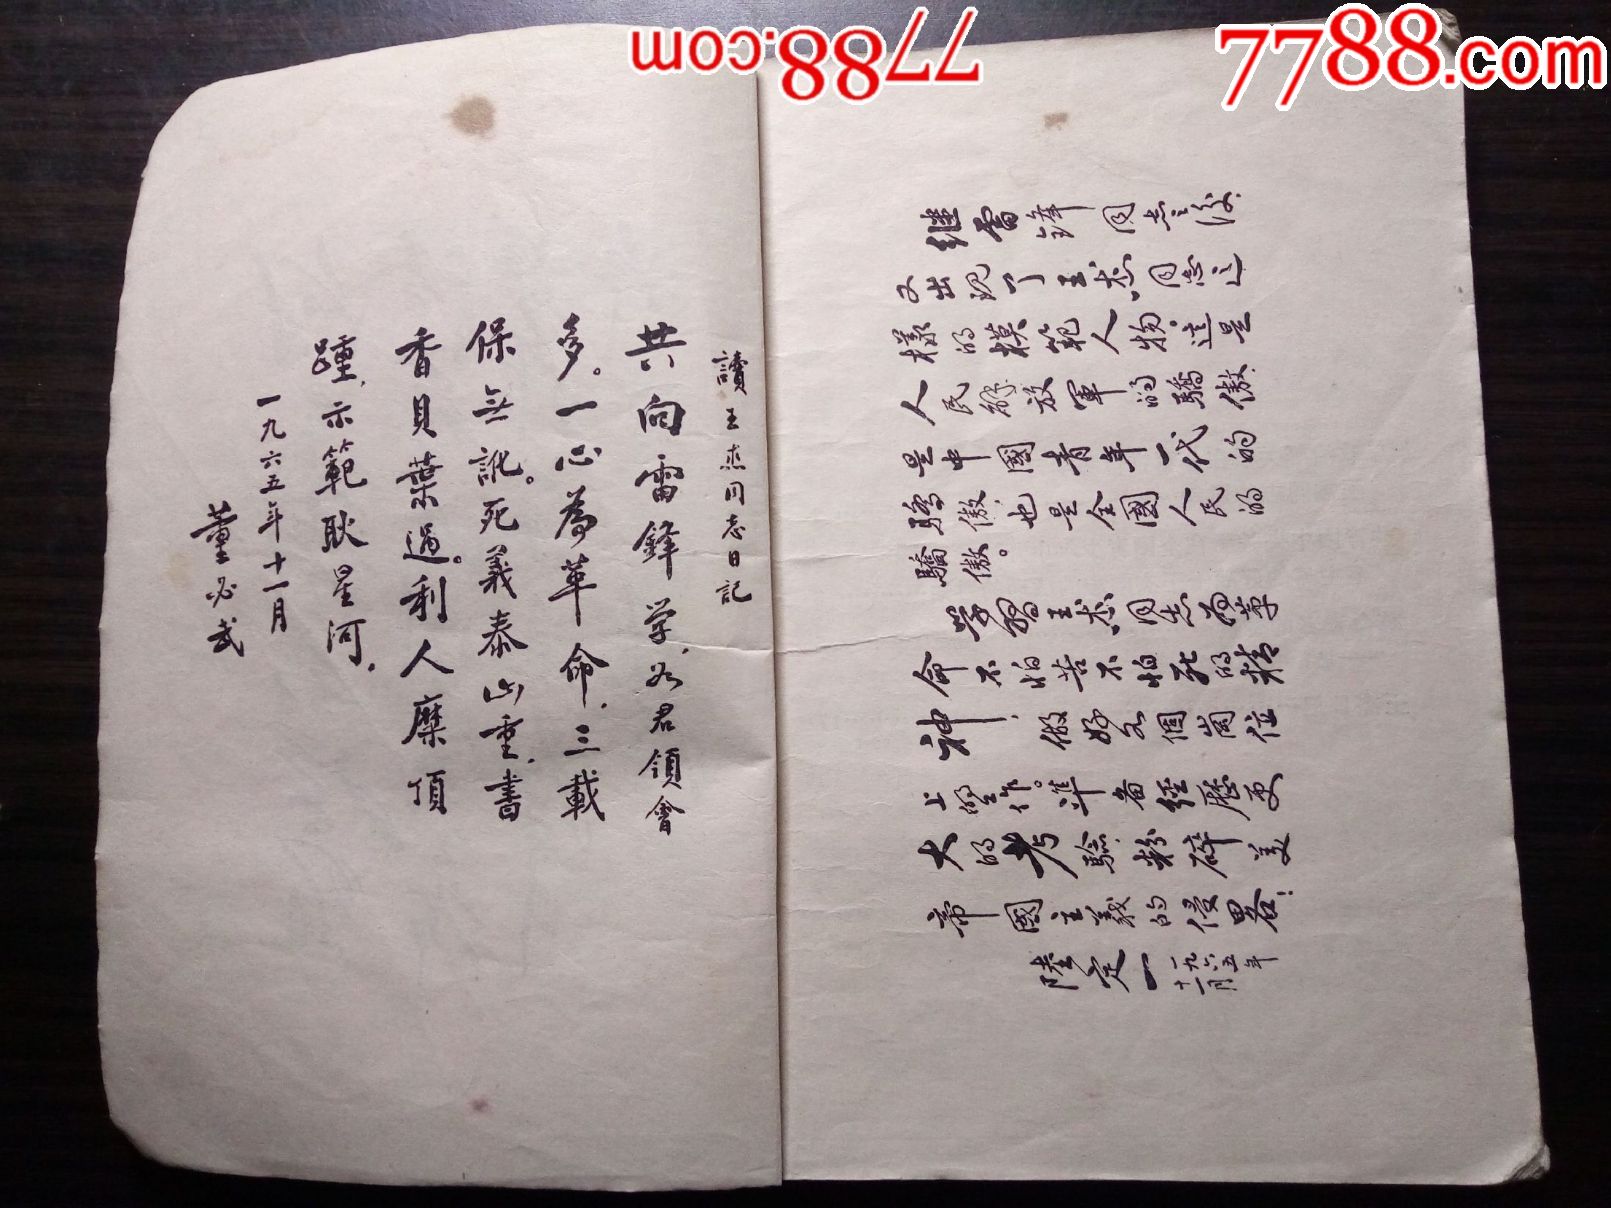 7788.com
7788.com
讀王杰同志日記
共向雷鋒学,如君領會
多。一心為革命,三載
保無訛。死義泰山重,書
香貝葉過。利人糜頂
踵,示範耿星河。
一九六五年十一月
董必武
继雷鋒同志之後,
又出现了王杰同志这
樣的模範人物。這是
人民解放軍的驕傲,
是中國青年一代的
驕傲,也是全國人民的
驕傲。
学習王杰同志为革
命不怕苦不怕死的精
神,做好各個崗位
上的工作。準备經歷更
大的考驗,粉碎美
帝國主義的侵畧!
陸定一
一九六五年
十一月